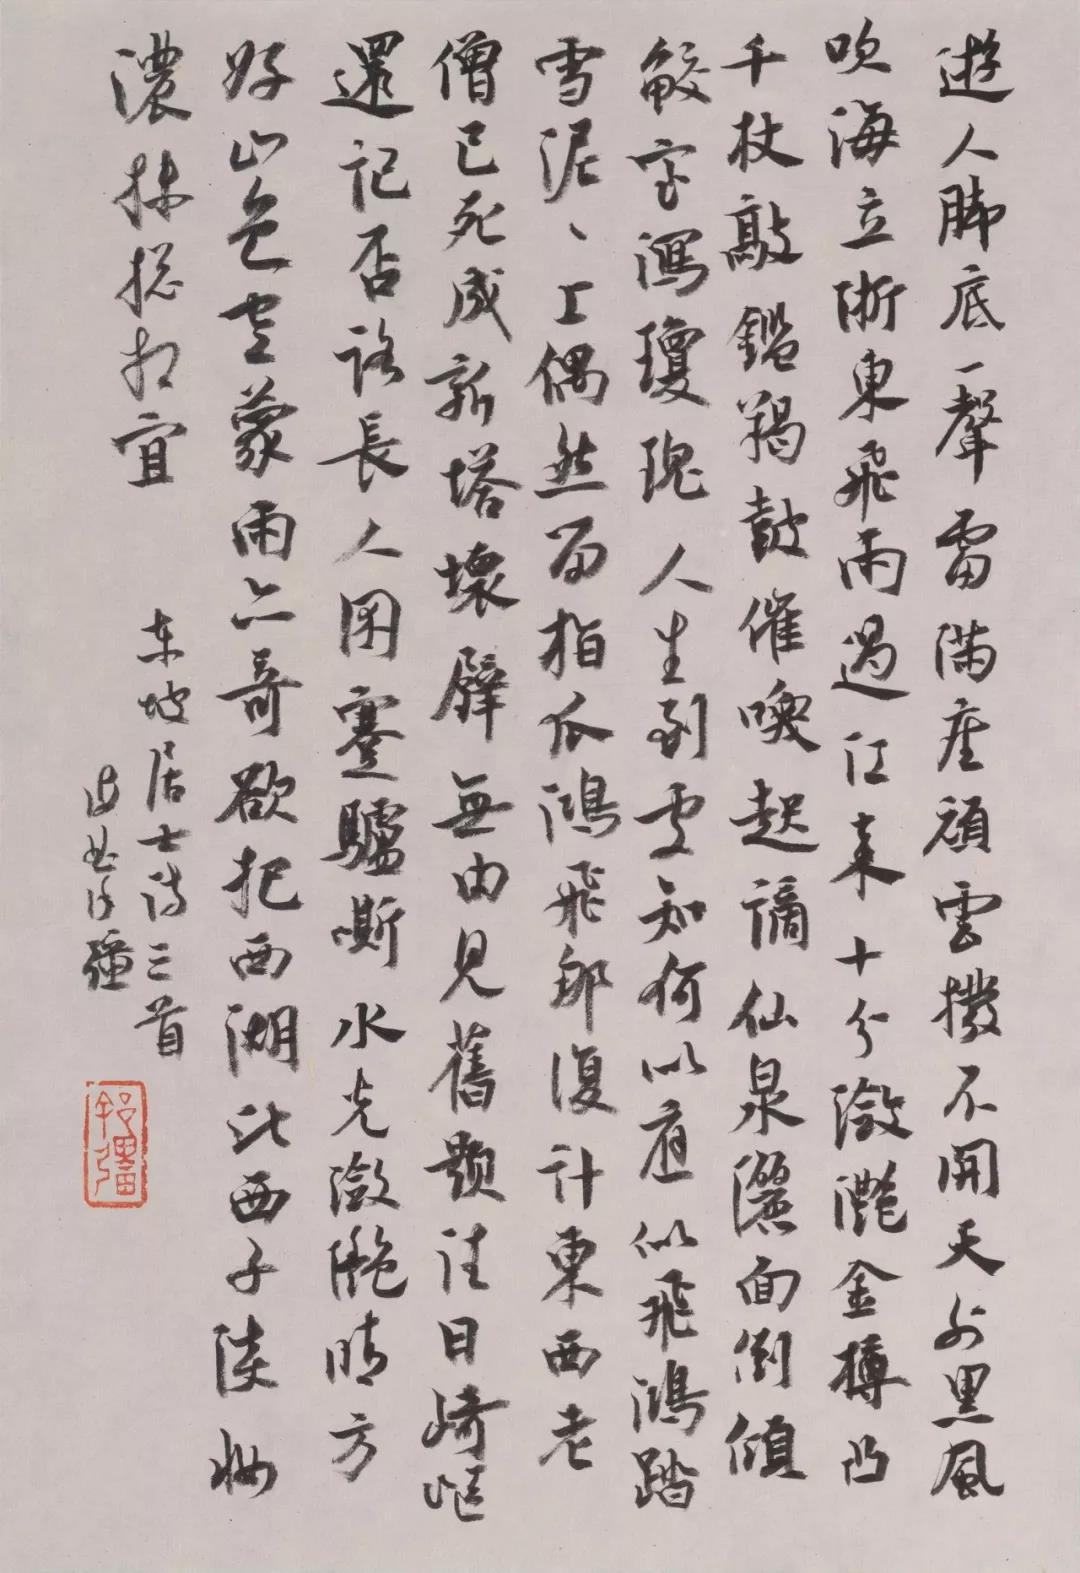 遊人脚底一聲雷滿座頑雲撥不開天外黑風
吹海立浙東飛雨過江來十分瀲灧金樽凸
千杖敲鏗羯鼓催喚起謫仙泉灑面倒傾
鮫室瀉瓊瑰 人生到處知何以應似飛鴻踏
雪泥、上偶然留指爪鴻飛那復計東西老
僧已死成新塔壞壁無由見舊題往日崎嶇
還記否路長人困蹇驢嘶 水光瀲灧晴方
好山色空蒙雨亦奇欲把西湖比西子淡妝
濃抹總相宜
东坡居士诗三首